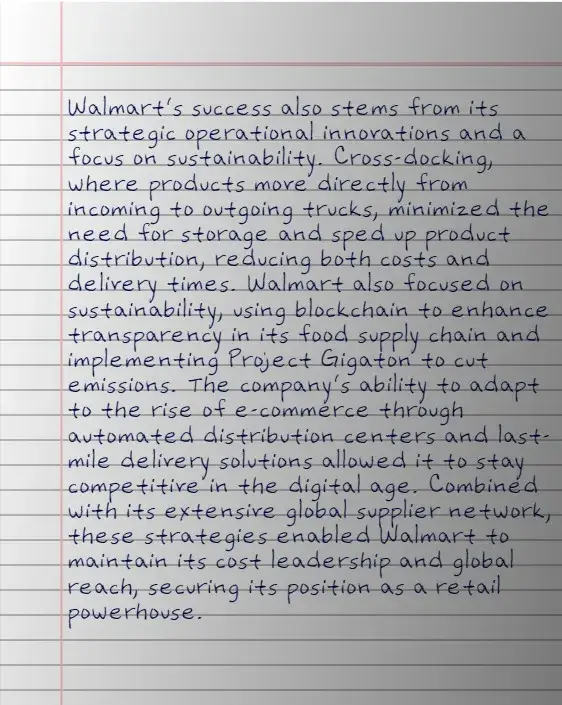 Walmart's success also stems from its
strategic operational innovations and a
focus on sustainability. Cross-docking,
where products move directly from
incoming to outgoing trucks, minimized the
need for storage and sped up product
distribution, reducing both costs and
delivery times. Walmart also focused on
sustainability, using blockchain to enhance
transparency in its food supply chain and
implementing Project Gigaton to cut
emissions. The company's ability to adapt
to the rise of e-commerce through
automated distribution centers and last-
mile delivery solutions allowed it to stay
competitive in the digital age. Combined
with its extensive global supplier network,
these strategies enabled Walmart to
maintain its cost leadership and global
reach, securing its position as a retail
powerhouse.